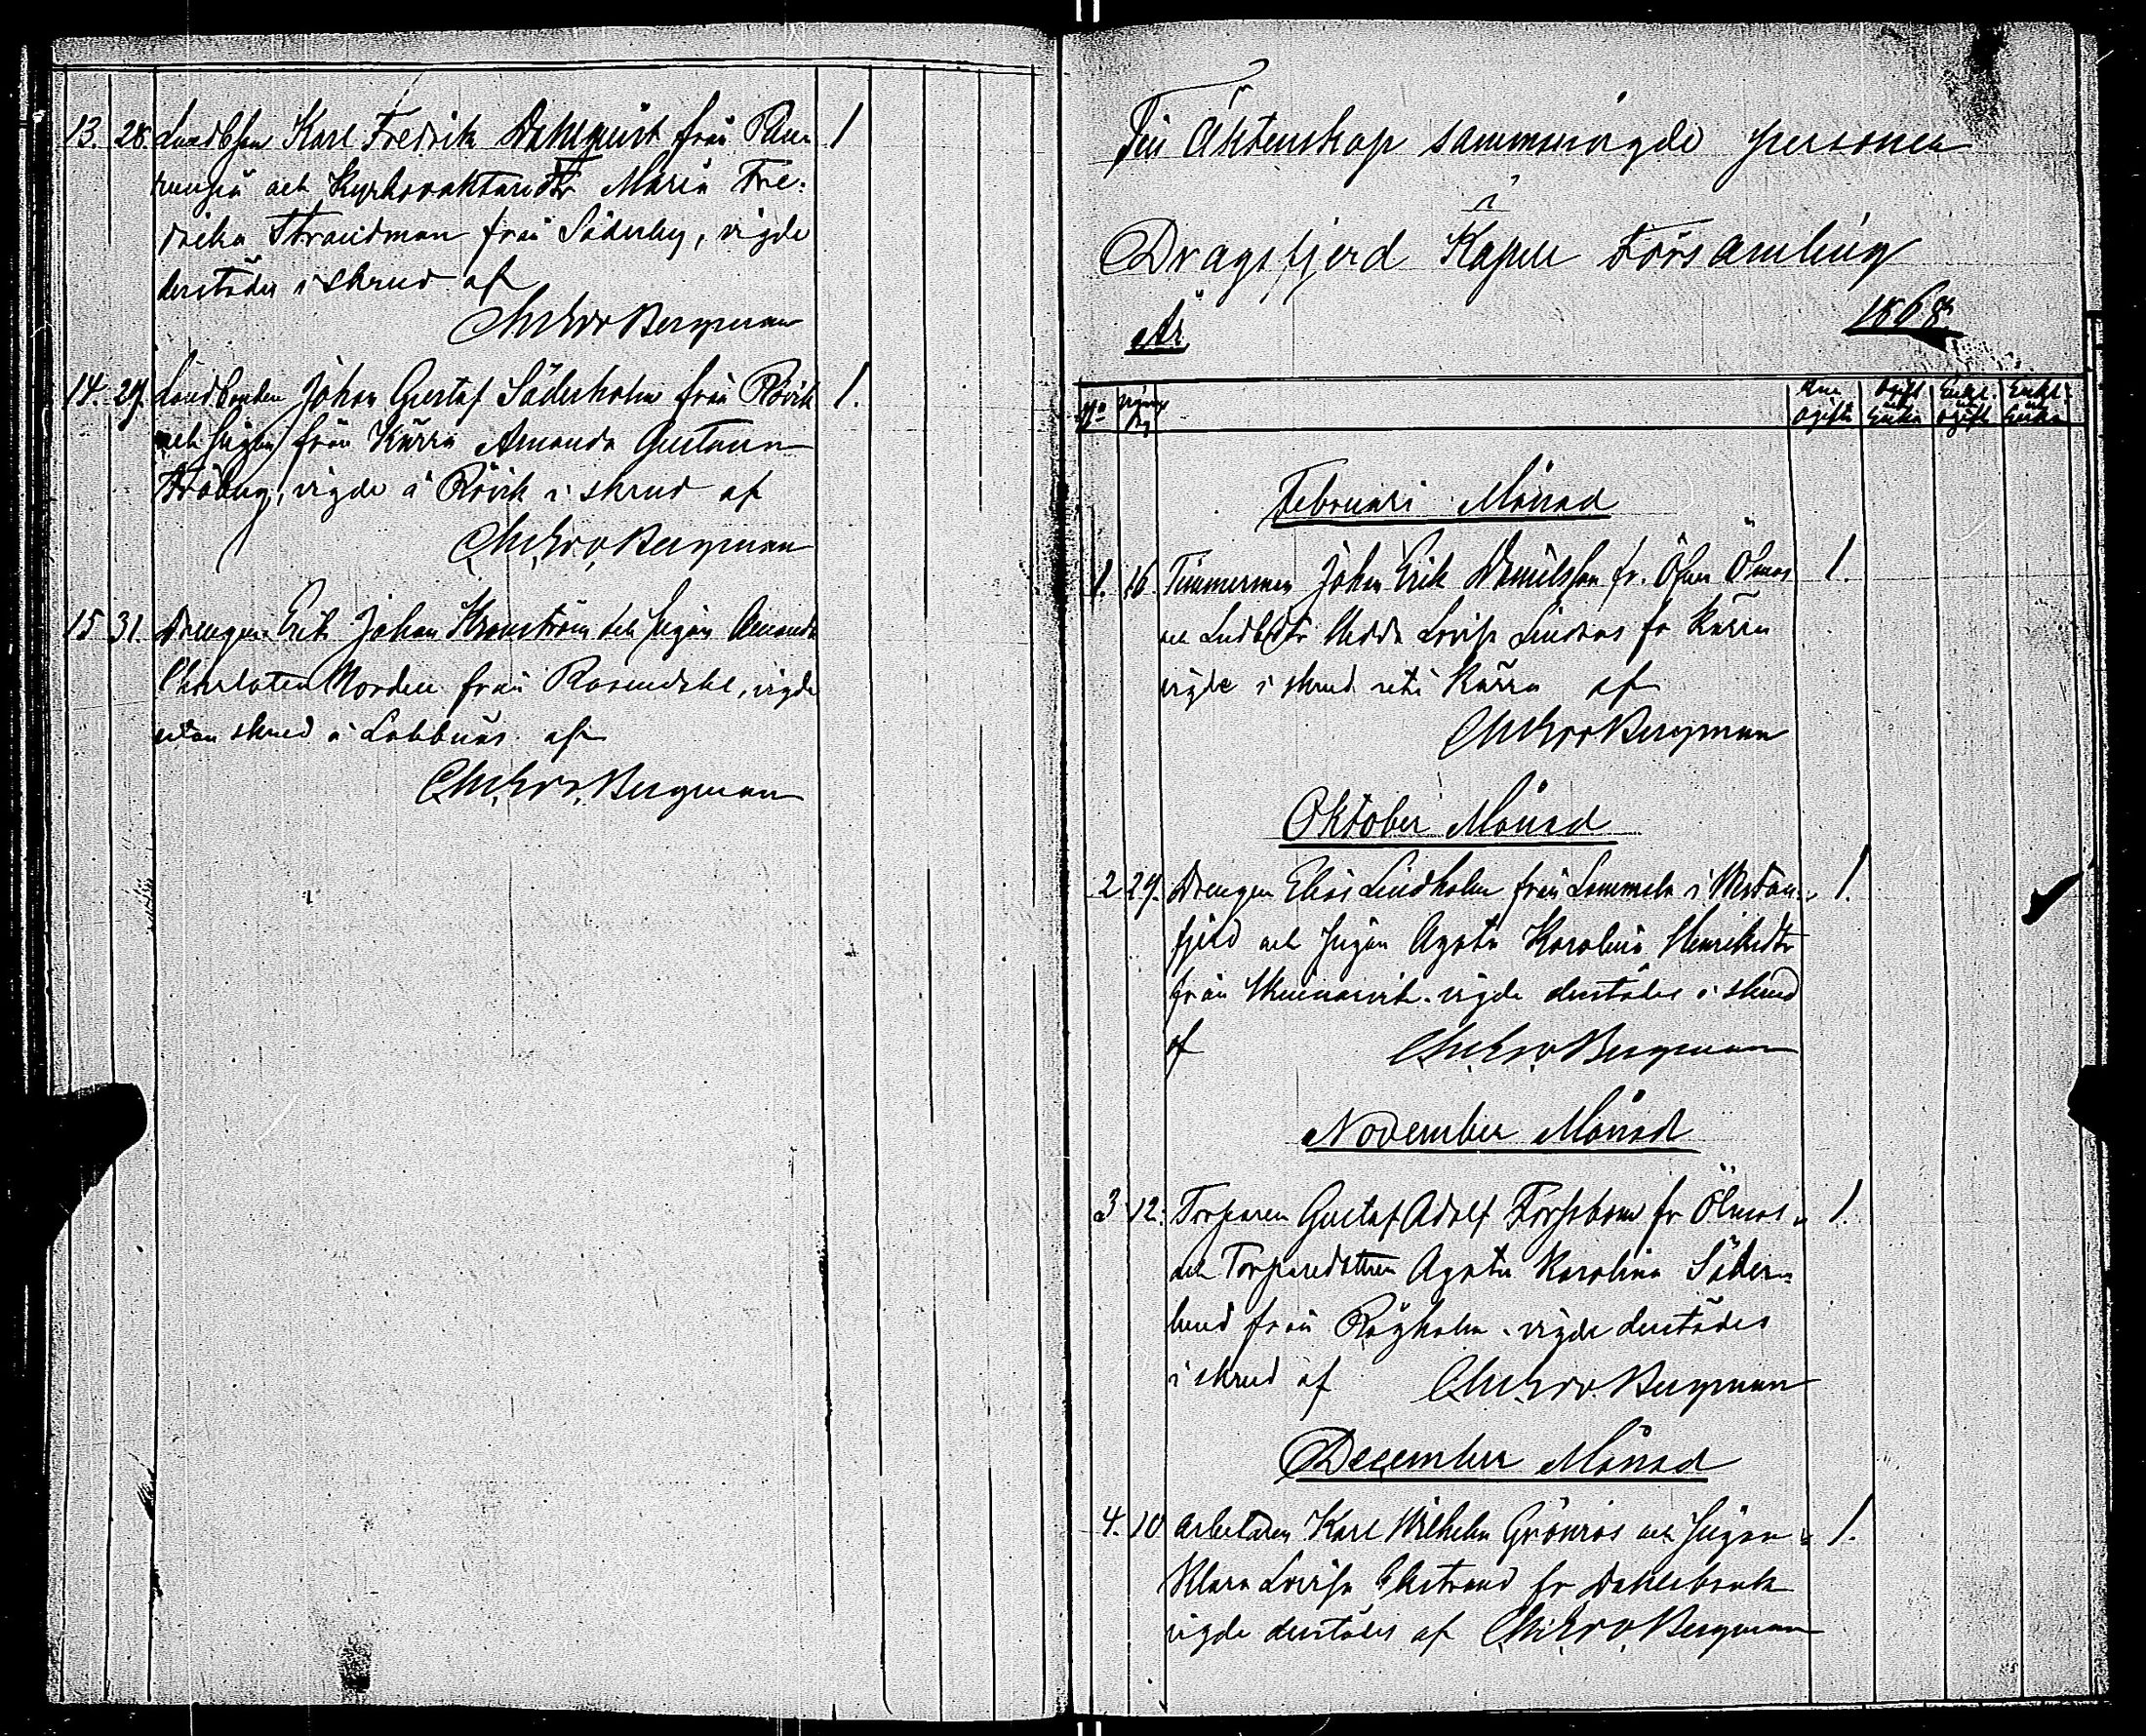 13. 28. Landbsn Karl Fredrik Dahlqvist från
och Kyrkovaktaredtr Maria Fre-
drika Strandman från Söderby, vigde
derstädes i skrud af
Bergman
1
14. 29. Landbonden Johan Gustaf Söderholm från Rövik
och Pigan från Kärra Amanda Gustava
Fröberg, vigde å Rövik i skrud af
Bergman
1.
15 31. Drengen Erik Johan Kronström och Pigan Amanda
Charlotta Norden från Rosendahl, vigde
utan skrud å Labbnäs af
Bergman
Till Äktenskap sammanvigde personer
i
Dragsfjerd Kapell Församling
År 1868
No Vigning dag Än ogifte Ogift och Enka Enkl. och ogift Enkl. och Enka
Februari Månad
1. 16. Timmerman Johan Erik Danielsson fr. Öfver Ölmos 1.
och Ldbdtr Hedda Lovisa Lindroos fr Kärra
vigde i skrud uti Kärra af
Bergman
Oktober Månad
2 29. Drengen Elias Lindholm från Lammala i Vestan- 1.
fjerd och Pigan Agata Karolina Henriksdtr
från vigde derstädes i skrud
af Bergman
November Månad
3 12. Torparen Gustaf Adolf Forsbom fr Ölmos 1.
och Torparedottren Agata Karolina Söder-
lund från Rågholm vigde derstädes
i skrud af Bergman
December Månad
4. 10 Arbetaren Karl Wilhelm Grönroos och Pigan 1.
Klara Lovisa Ekstrand fr Dahlsbruk
vigde derstädes af Bergman